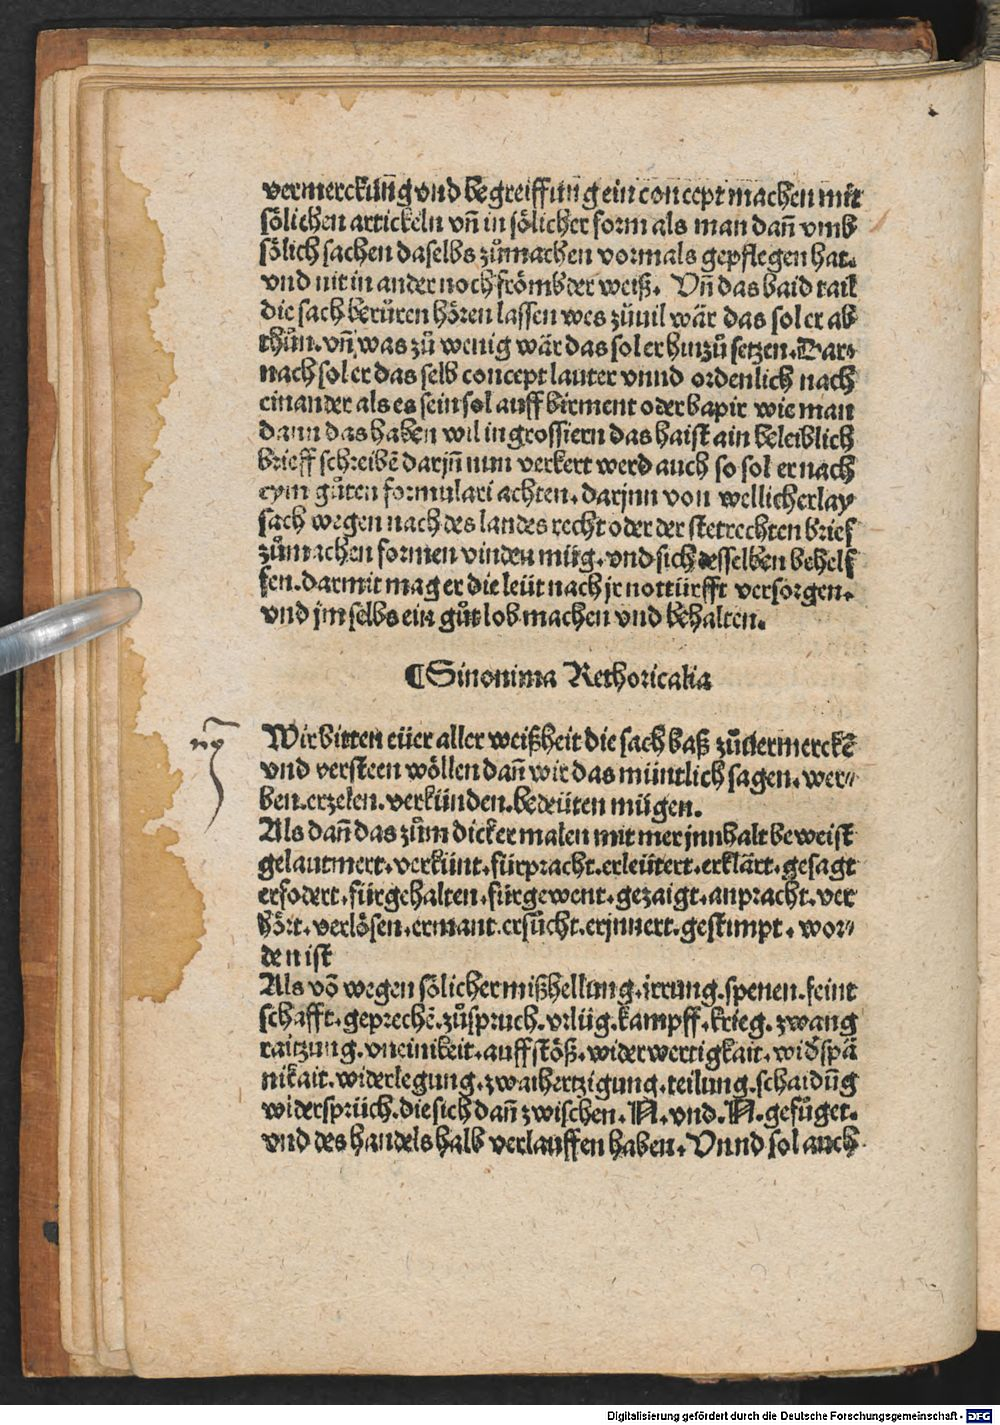 vermerckūng vnd begreiffung ein concept machen mit
sölichen artickeln vn̄ in sölicher form als man dan̄ vmb
sölich sachen daselbs zůmachen vormals gepflegen hat.
vnd nit in ander noch frömbder weiß. Vn̄ das baid tail
die sach berůren hören lassen wes zůuil wär das sol er ab
thůn. vn̄ was zů wenig wär das sol er hinzů setzen. Dar-
nach sol er das selb concept lauter vnnd ordenlich nach
einander als es sein sol auff birment oder bapir wie man
dann das haben wil ingrossiern das haist ain beleiblich
brieff schreibē darjn̄ nun verkert werd auch so sol er nach
eym gůten formulari achten. darjnn von wellicherlay
sach wegen nach des landes recht oder der stetrechten brief
zůmachen formen vinden müg. vnd sich desselben behelf
fen. darmit mag er die leüt nach jr nottürfft versorgen.
vnd jm selbs ein gůt lob machen vnd behalten.
¶ Sinonima Rethoricalia
Wir bitten eüer aller weißheit die sach baß zůuermerckē
vnd versteen wöllen dan̄ wir das müntlich sagen. wer-
ben. erzelen. verkünden. bedeüten mügen.
Als dan̄ das zům dicker malen mit mer jnnhalt beweist
gelautmert. verkünt. fürpracht. erleütert. erklärt. gesagt
erfodert. fürgehalten. fürgewent. gezaigt. anpracht. ver
hört. verlösen. ermant. ersůcht. erjnnert. gestimpt. wor-
den ist
Als vō wegen sölicher mißhellung. irrung. spenen. feint
schafft. geprechē. zůspruch. vrlüg. kampff. krieg. zwang
raitzung. vneinikeit. auffstöß. widerwertigkait. wid̄spä
nikait. widerlegung. zwaihertzigung. teilung. schaidūg
widersprüch. die sich dan̄ zwischen. N. vnd. N. gefůget.
vnd des handels halb verlauffen haben. Vnnd sol auch
Digitalisierung gefördert durch die Deutsche Forschungsgemeinschaft - DFG